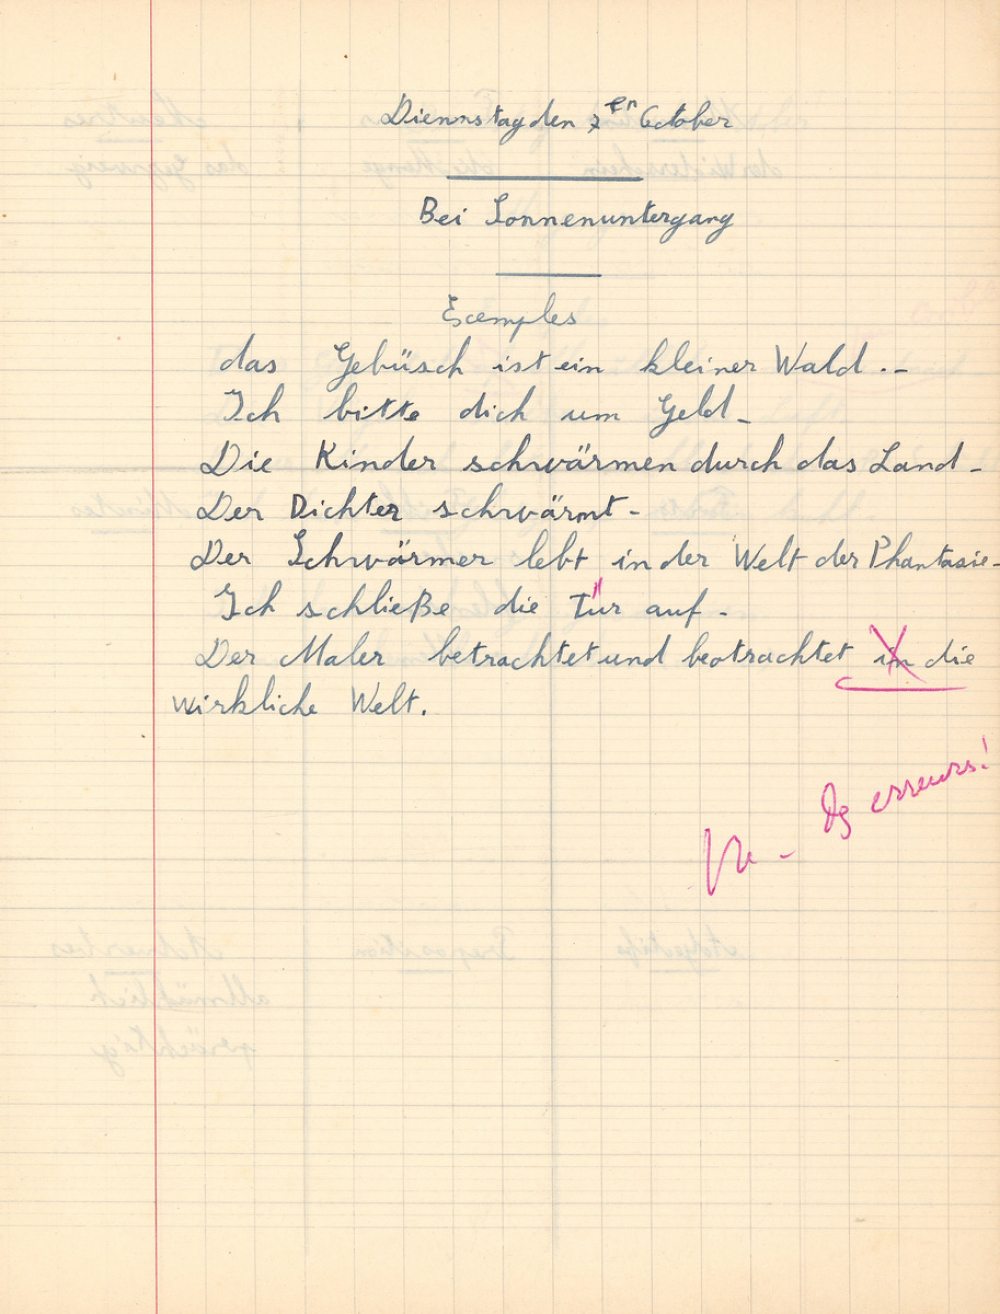 Diennstag den 7en October
Bei Sonnenuntergang
Exemples
das Gebüsch ist ein kleiner Wald.-
Ich bitte dich um Geld-
Die Kinder schwärmen durch das Land-
Der Dichter schwärmt-
Der Schwärmer lebt in der Welt der Phantasie-
Ich schließe die Tür auf-
Der Maler betrachtet und beotrachtet in die
wirkliche Welt.
Vu - Des erreurs!